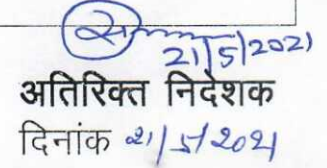 21/5/2021
अतिरिक्त निदेशक
दिनांक 21/5/2021